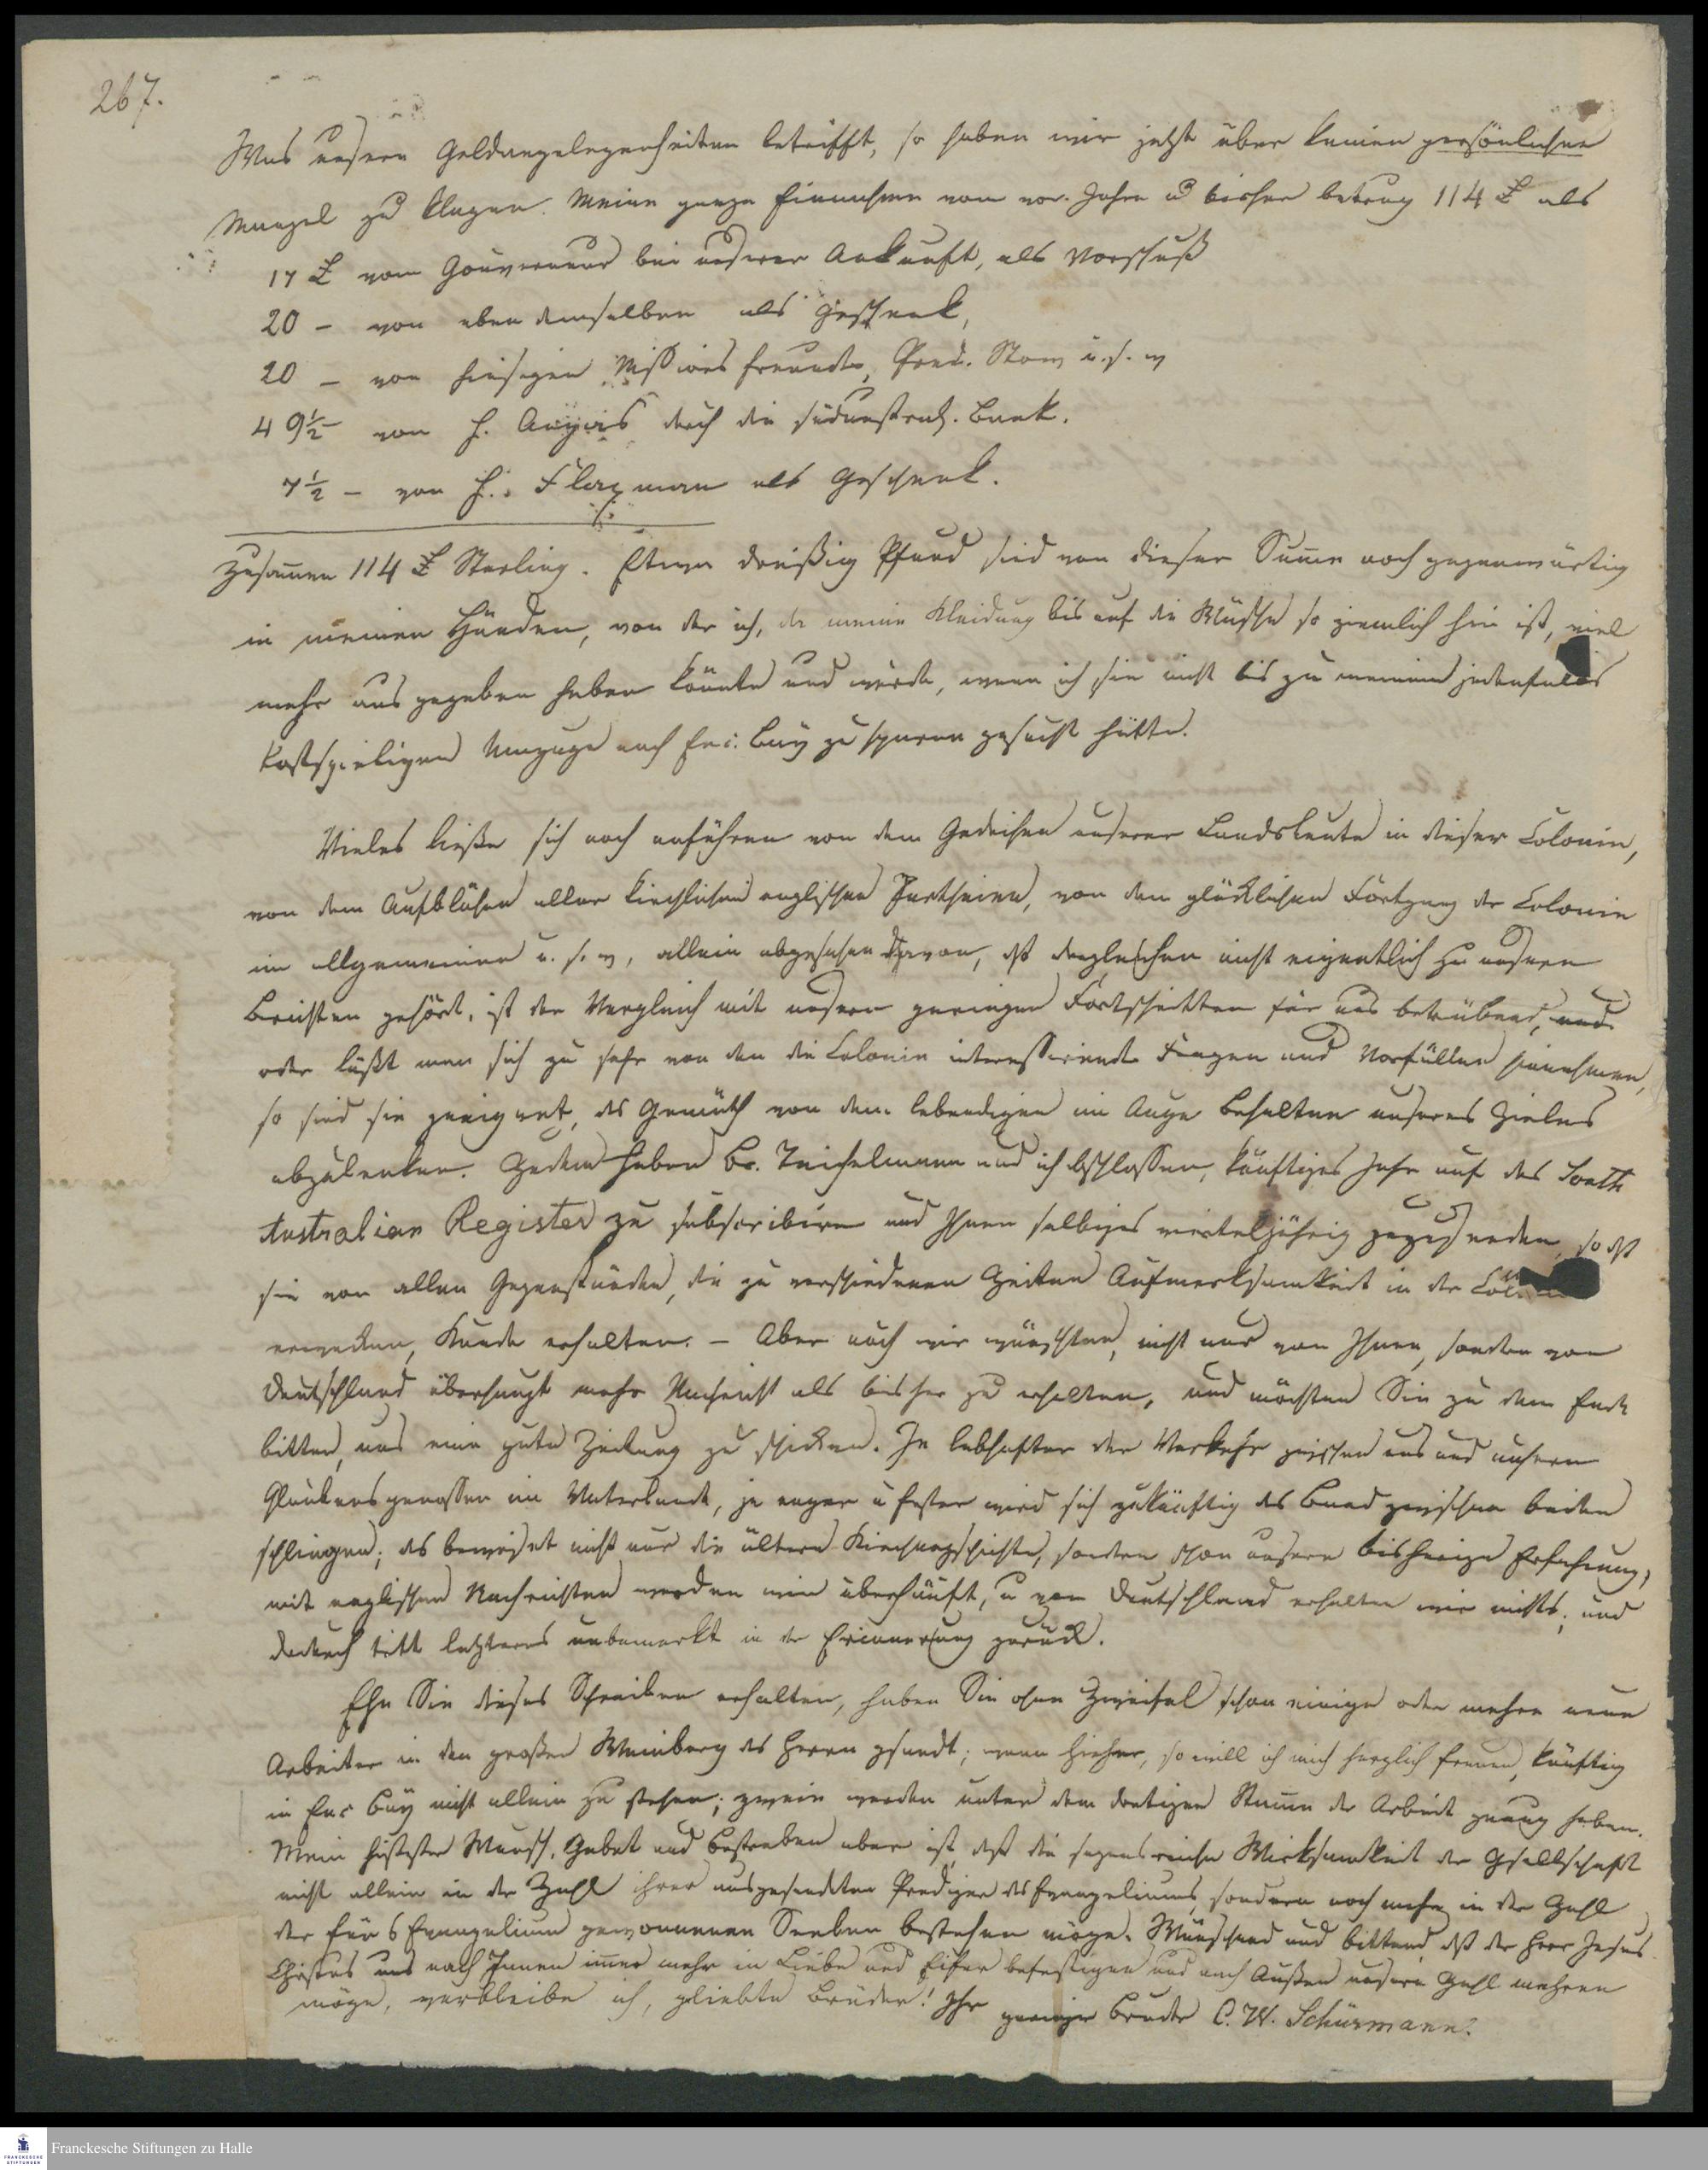 267.
Was unsere Geldangelegenheiten betrifft, so haben wir jetzt über keinen persönlichen
Mangel zu klagen. Meine ganze Einnahme vom vor. Jahre u bisher betrug 114 £ als
17 £ vom Gouverneur bei unserer Ankunft, als Vorschuß
20 – von eben demselben als Geschenk,
20 – von hiesigen Missionsfreunden, Pred. Stow u. s. w
49½ von H. Angas durch die südaustral. Bank.
7½ – von H. Flaxman als Geschenk.
Zusam̄en 114 £ Sterling. Etwa dreißig Pfund sind von dieser Sum̄e noch gegenwärtig
in meinen Händen, von der ich, da meine Kleidung bis auf die Wäsche so ziemlich hin ist, viel
mehr ausgegeben haben könnte und würde, wenn ich sie nicht bis zu meinem jedenfalls
kostspieligen Umzuge nach Enc. Bay zu sparen gesucht hätte.
Vieles ließe sich noch anführen von dem Gedeihen unserer Landsleute in dieser Colonie,
von dem Aufblühen aller kirchlichen englischen Partheien, von dem glücklichen Fortgang der Colonie
im allgemeinen u. s. w, allein abgesehen davon, dß dergleichen nicht eigentlich zu unsern
Berichten gehört, ist der Vergleich mit unsern geringen Fortschritten für uns betrübend, und
oder läßt man sich zu sehr von den die Colonie interessirende Fragen und Vorfällen hinnehmen,
so sind sie geeignet, das Gemüth von dem lebendigen im Auge Behalten unseres Zieles
abzulenken. Zudem haben Br. Teichelmann und ich bschlossen, künftiges Jahr auf das South
Australian Register zu subscribiren und Ihnen selbiges vierteljährig zuzusenden, so dß
sie von allen Gegenständen, die zu verschiedenen Zeiten Aufmerksamkeit in der Colonie
erwecken, Kunde erhalten. – Aber auch wir wünschten, nicht nur von Ihnen, sondern von
Deutschland überhaupt mehr Nachricht als bisher zu erhalten, und möchten Sie zu dem Ende
bitten, uns eine gute Zeitung zu schicken. Je lebhafter der Verkehr zwischen uns und unsern
Glaubensgenossen im Vaterlande, je enger u fester wird sich zukünftig das Band zwischen beiden
schlingen; das beweiset nicht nur die ältere Kirchengschichte, sondern schon unsere bisherige Erfahrung,
mit englischen Nachrichten werden wir überhäuft, u von Deutschland erhalten wir nichts, und
dadurch tritt letzteres unbemerkt in der Erinnerung zurück.
Ehe Sie dieses Schreiben erhalten, haben Sie ohne Zweifel schon einige oder mehre neue
Arbeiter in den großen Weinberg des Herrn gsandt; wenn hieher, so will ich mich herzlich freuen, künftig
in Enc Bay nicht allein zu stehen; zwein werden unter dem dortigen Stam̄e der Arbeit genug haben.
Mein höchster Wunsch, Gebet und Bestreben aber ist, daß die segensreiche Wirksamkeit der Gsellschaft
nicht allein in der Zahl ihrer ausgesendeten Prediger des Evangeliums, sondern noch mehr in der Zahl
der fürs Evangelium gewonnenen Seelen bestehen möge. Wünschend und bittend, dß der Herr Jesus
Christus uns nach Innen im̄er mehr in Liebe und Eifer befestigen und nach Außen unsere Zahl mehren
möge, verbleibe ich, gliebte Brüder! Ihr geringer Bruder C. W. Schürmann.
Franckesche Stiftungen zu Halle